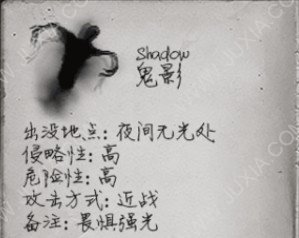 Shadow
鬼影
出没地点：夜间无光处
侵略性：高
危险性：高
攻击方式：近战
备注：畏惧强光